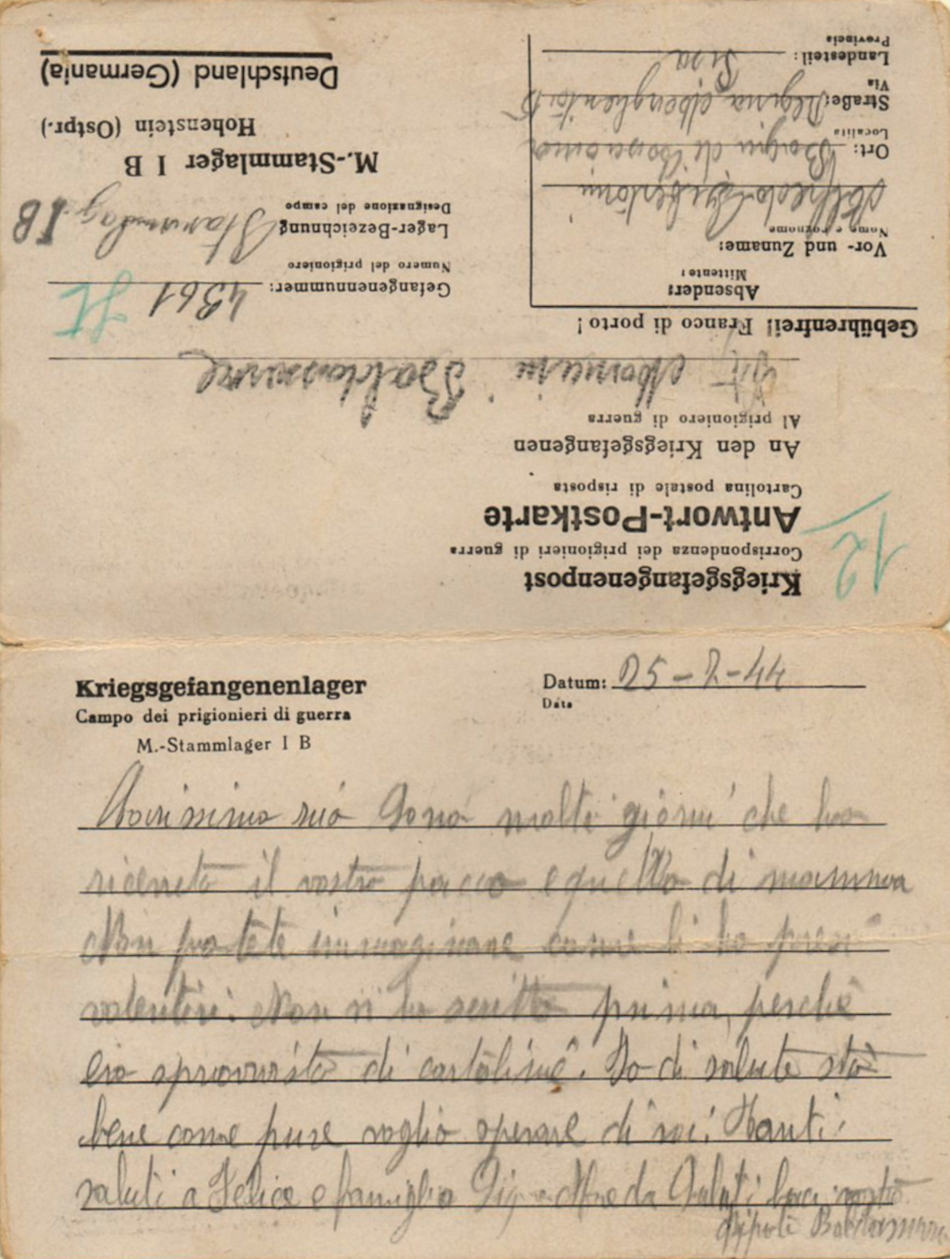 Kriegsgefangenenpost
Corrispondenza dei prigionieri di guerra
12
Antwort-Postkarte
Cartolina postale di risposta
An den Kriegsgefangenen
Al prigioniero di guerra
Baldassarre
Gebührenfrei! Franco di porto!
Absender:
Mittente:
Vor- und Zuname:
Nome e cognome
Alfredo
Ort: Bagni di Casciana
Località
Straße: Regina Margherita
Via
Landesteil: Pisa
Provincia
Gefangenennummer: 4361
Numero del prigioniero
Lager-Bezeichnung Stammlag IB
Designazione del campo
M.-Stammlager I B
Hohenstein (Ostpr.)
Deutschland (Germania)
Kriegsgefangenenlager
Campo dei prigionieri di guerra
M.-Stammlager I B
Datum: 25-2-44
Data
Carissimo Sono molti giorni che ho
ricevuto il vostro pacco e quello di mamma
Non potete immaginare come li ho presi
volentieri. Non vi ho scritto prima, perchè
ero sprovvisto di cartoline. Io di salute sto
bene come pure voglio sperare di voi. Tanti
saluti a Felice e famiglia Saluti baci vostro
Baldassarre